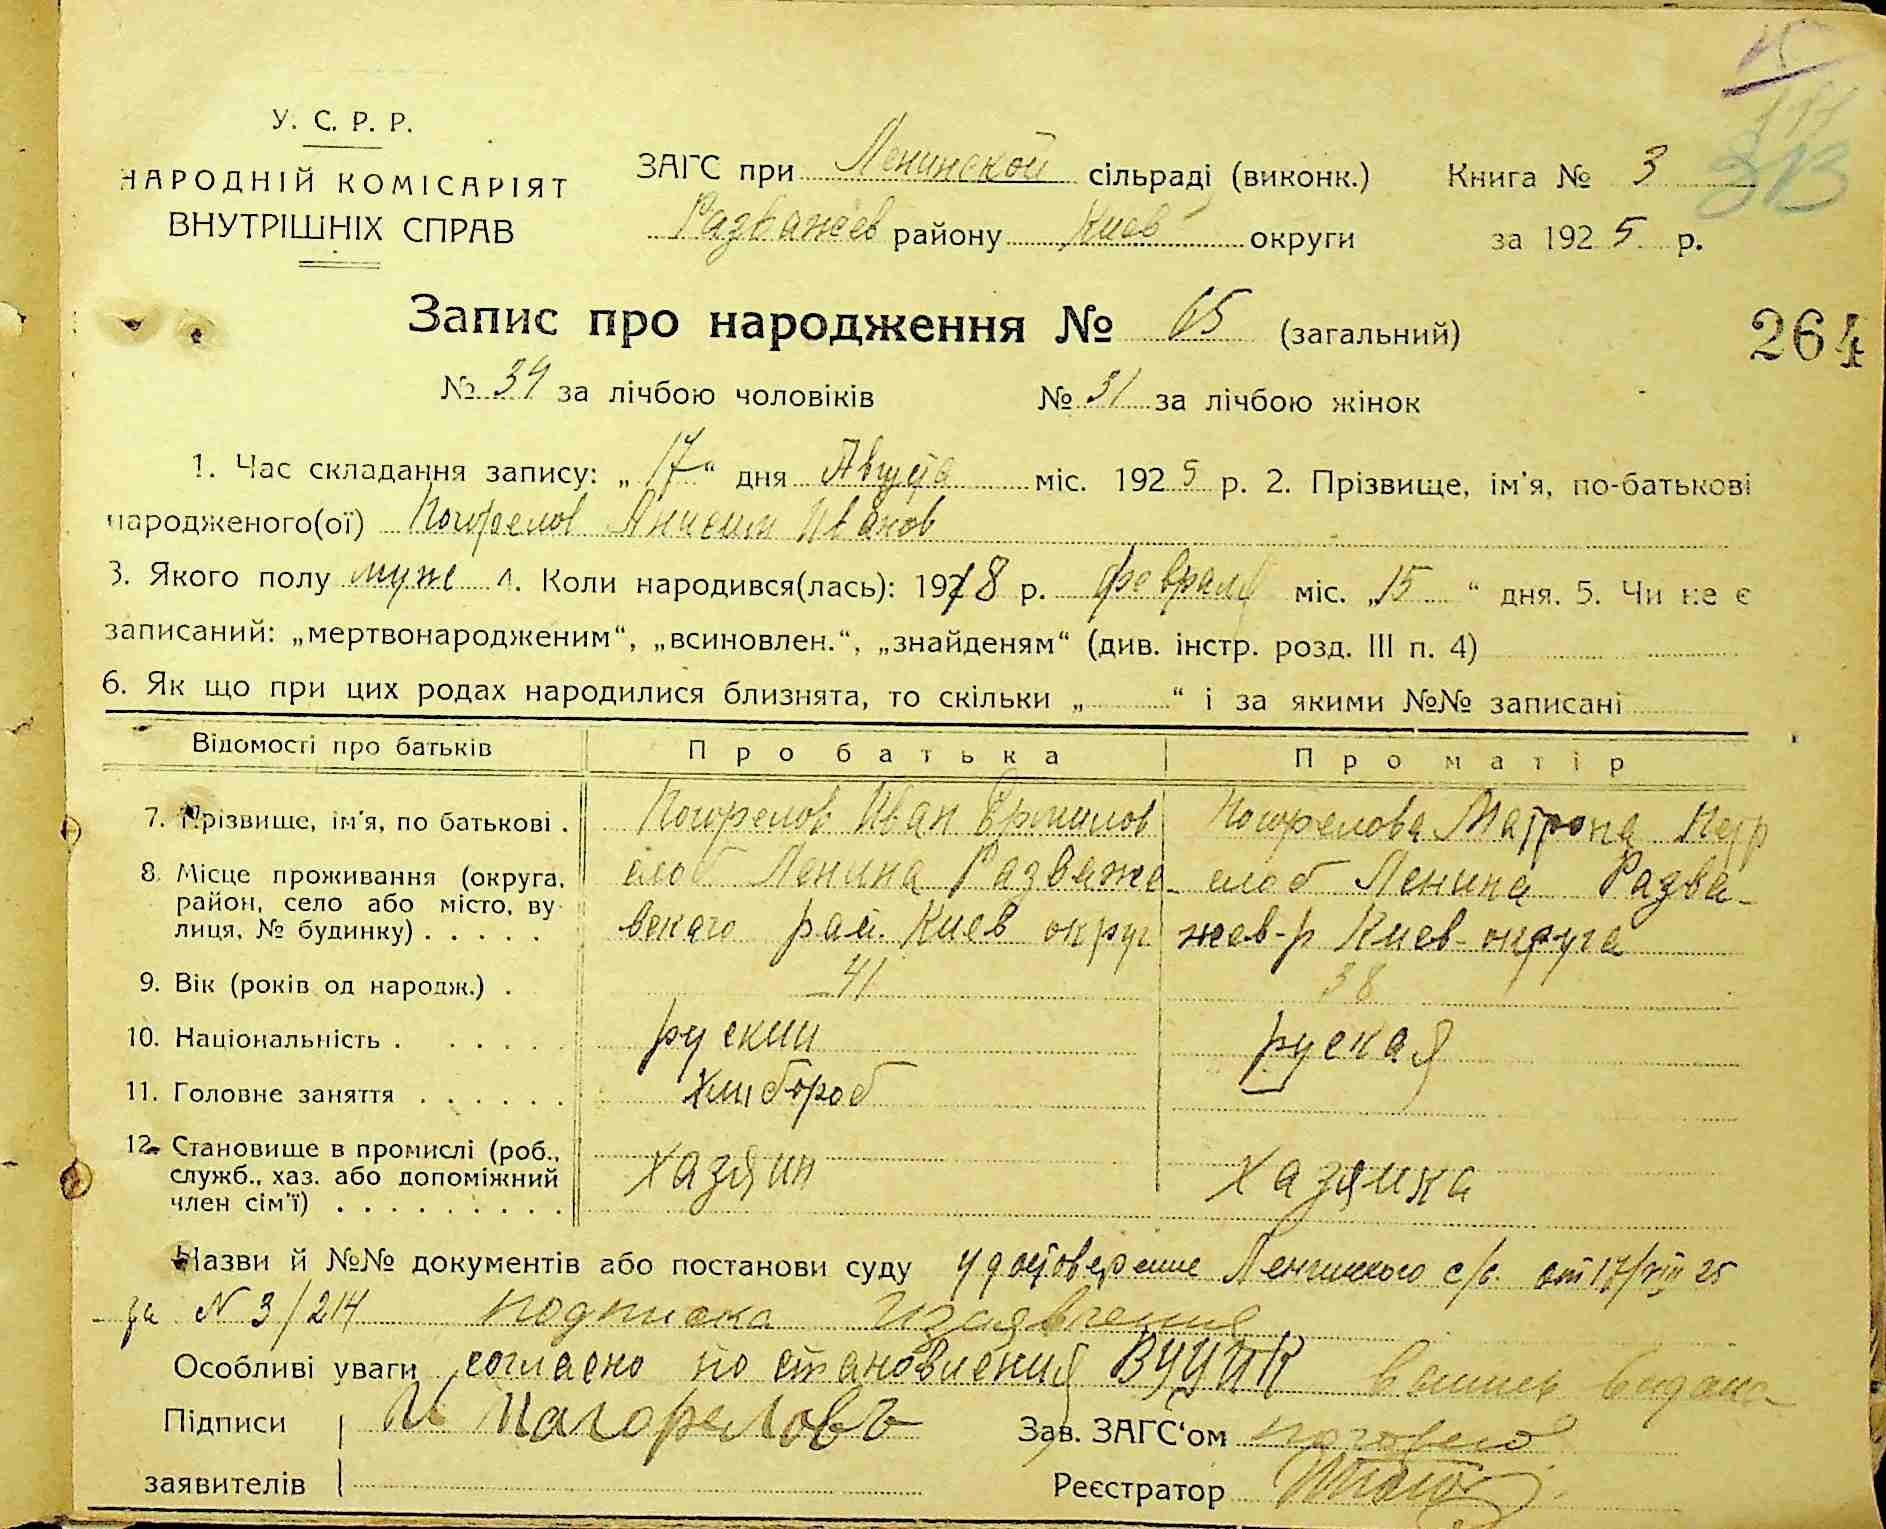 У. С. Р. Р.
НАРОДНІЙ КОМІСАРІЯТ
ВНУТРІШНІХ СПРАВ
ЗАГС при Ленинской сільраді (виконк.) Книга № 3
Розважев району Киев округи за 1925 р.
Запис про народження № 65 (загальний)
264
№ 34 за лічбою чоловіків № 31 за лічбою жінок
1. Час складання запису: „17“ дня Августа міс. 1925 р. 2. Прізвище, ім'я, по-батькові
народженого(ої) Погорелов Анисим Иванов
3. Якого полу муже 4. Коли народився(лась): 1918 р. февраля міс. „15“ дня. 5. Чи не є
записаний: „мертвонародженим“, „всиновлен.“, „знайденям“ (див. інстр. розд. III п. 4)
6. Як що при цих родах народилися близнята, то скільки „ “ і за якими №№ записані
Відомості про батьків Про батька Про матір
7. Прізвище, ім'я, по батькові . Погорелов Иван Ермилов Погорелова Матрона Петр
8. Місце проживання (округа, район, село або місто, вулиця, № будинку) . . . . . слоб Ленина Разваже-вскаго рай. Киев округ слоб Ленина Разва-жев-р Киев-округа
9. Вік (років од народж.) . 41 38
10. Національність . . . . . руский руская
11. Головне заняття . . . . . . хлибороб
12. Становище в промислі (роб., служб., хаз. або допоміжний член сім'ї) . . . . . . . . . хазяин хазяика
Назви й №№ документів або постанови суду удостоверение Ленинского с/с. от 17/VIII 25
за N 3/214 подписка изаявления
Особливі уваги согласно постановления ВУЦИК выпись выдана
Підписи И Пагореловъ Зав. ЗАГС'ом
заявителів Реєстратор